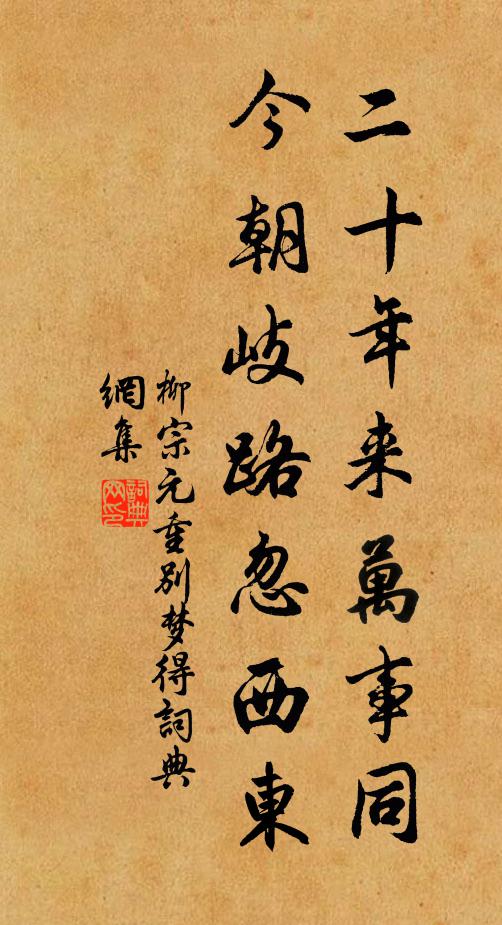 二十年来萬事同
今朝岐路忽西東
柳宗元重别梦得詞典
網集
詞典
网印